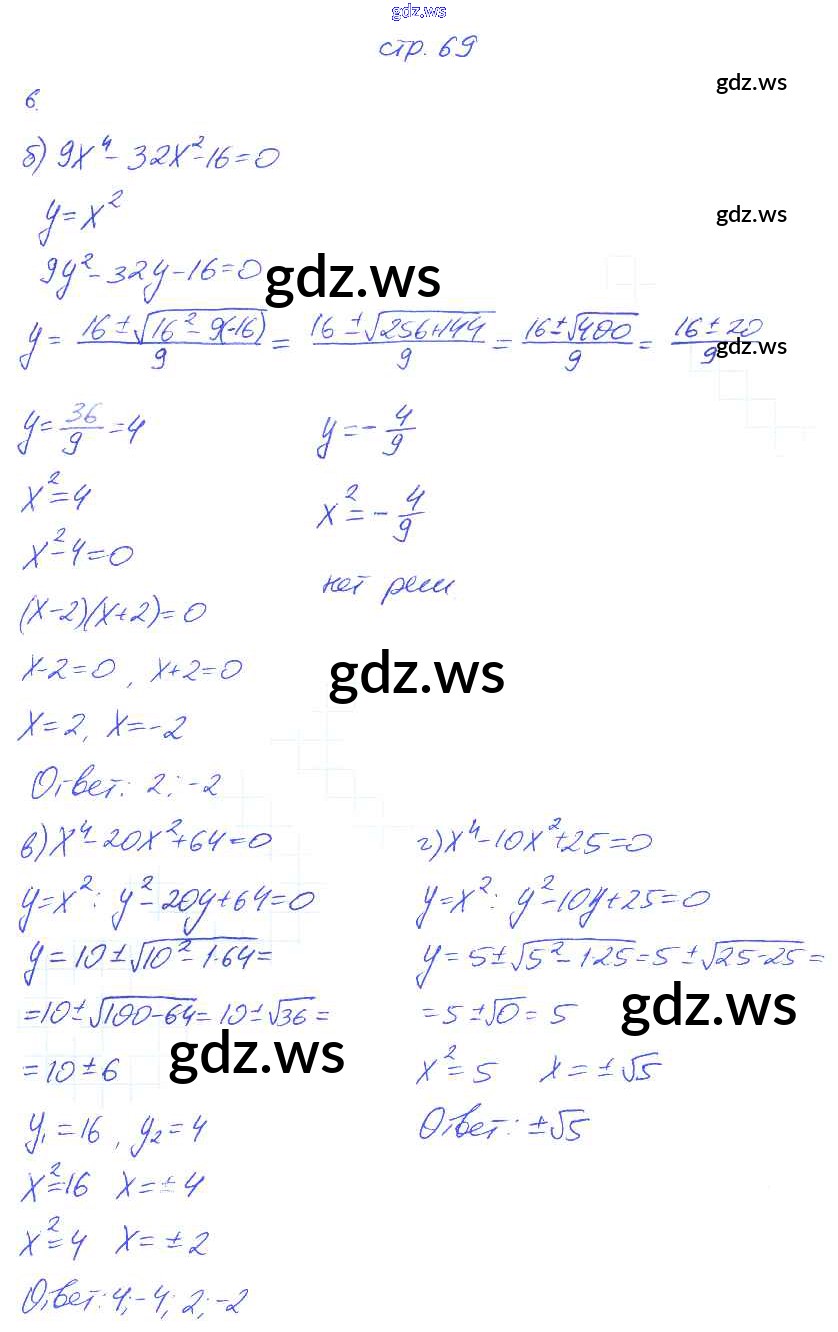 gdz.ws
стр. 69
gdz.ws
6.
б) 9x⁴ - 32x² - 16 = 0
y = x²
gdz.ws
9y² - 32y - 16 = 0
gdz.ws
y = (16 ± √(16² - 9(-16)))/9 = (16 ± √(256+144))/9 = (16 ± √400)/9 = (16 ± 20)/9
gdz.ws
y = 36/9 = 4
y = -4/9
x² = 4
x² = -4/9
x² - 4 = 0
нет реш
(x-2)(x+2) = 0
x-2=0, x+2=0
gdz.ws
x=2, x=-2
Ответ: 2; -2
в) x⁴ - 20x² + 64 = 0
y = x²: y² - 20y + 64 = 0
y = 10 ± √(10² - 1·64) =
= 10 ± √(100-64) = 10 ± √36 =
= 10 ± 6
gdz.ws
y₁ = 16, y₂ = 4
x² = 16 x = ±4
x² = 4 x = ±2
Ответ: 4; -4; 2; -2
г) x⁴ - 10x² + 25 = 0
y = x²: y² - 10y + 25 = 0
y = 5 ± √(5² - 1·25) = 5 ± √(25-25) =
= 5 ± √0 = 5
gdz.ws
x² = 5 x = ±√5
Ответ: ±√5